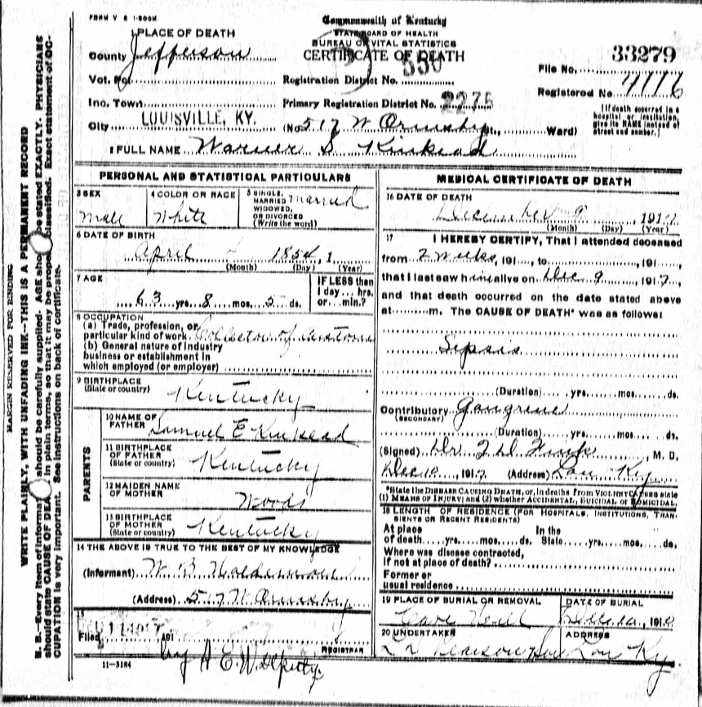 FORM V S 1-500M
Commonwealth of Kentucky
STATE BOARD OF HEALTH
BUREAU OF VITAL STATISTICS
CERTIFICATE OF DEATH
1 PLACE OF DEATH
County Jefferson
Vot. Pct
Inc. Town
City LOUISVILLE, KY.
Registration District No. 550
Primary Registration District No. 2275
(No. 517 W Ormsby St., Ward)
File No. 33279
Registered No.
[If death occurred in a hospital or institution, give its NAME instead of street and number.]
2 FULL NAME Warner S Kinkead
PERSONAL AND STATISTICAL PARTICULARS
3 SEX
Male
4 COLOR OR RACE
White
5 SINGLE, MARRIED WIDOWED, OR DIVORCED (Write the word)
Married
6 DATE OF BIRTH
April 1854, 1
(Month) (Day) (Year)
7 AGE
63 yrs. 8 mos. 5 ds.
IF LESS than 1 day... hrs. or...min.?
8 OCCUPATION
(a) Trade, profession, or particular kind of work. Collector of Customs
(b) General nature of industry
business or establishment in
which employed (or employer)
9 BIRTHPLACE
(State or country) Kentucky
PARENTS
10 NAME OF FATHER Samuel E Kinkead
11 BIRTHPLACE OF FATHER (State or country) Kentucky
12 MAIDEN NAME OF MOTHER Woods
13 BIRTHPLACE OF MOTHER (State or country) Kentucky
14 THE ABOVE IS TRUE TO THE BEST OF MY KNOWLEDGE
(Informant) W. B.
(Address) 517 W Ormsby
15
Filed 191
by A E W Deputy
REGISTRAR
11-3184
MEDICAL CERTIFICATE OF DEATH
16 DATE OF DEATH
December 9, 1917
(Month) (Day) (Year)
17 I HEREBY CERTIFY, That I attended deceased
from 2 weeks, 191..., to..., 191...,
that I last saw him alive on Dec 9, 1917,
and that death occurred on the date stated above
at...m. The CAUSE OF DEATH* was as follows:
Sepsis
(Duration)...yrs...mos...ds.
Contributory Gangrene
(SECONDARY)
(Duration)...yrs...mos...ds.
(Signed) Dr. M. D.
Dec 10, 1917 (Address) Lou Ky
*State the DISEASE CAUSING DEATH, or, in deaths from VIOLENT CAUSES state
(1) MEANS OF INJURY; and (2) whether ACCIDENTAL, SUICIDAL or HOMICIDAL.
18 LENGTH OF RESIDENCE (FOR HOSPITALS, INSTITUTIONS, TRANSIENTS OR RECENT RESIDENTS)
At place of death...yrs...mos...ds. In the State...yrs...mos...ds.
Where was disease contracted,
if not at place of death?
Former or
usual residence
19 PLACE OF BURIAL OR REMOVAL
Cave Hill
DATE OF BURIAL
191
20 UNDERTAKER
ADDRESS
Lou Ky
MARGIN RESERVED FOR BINDING
WRITE PLAINLY, WITH UNFADING INK—THIS IS A PERMANENT RECORD
N. B.—Every item of information should be carefully supplied. AGE should be stated EXACTLY. PHYSICIANS
should state CAUSE OF DEATH in plain terms, so that it may be properly classified. Exact statement of OC-
CUPATION is very important. See instructions on back of certificate.